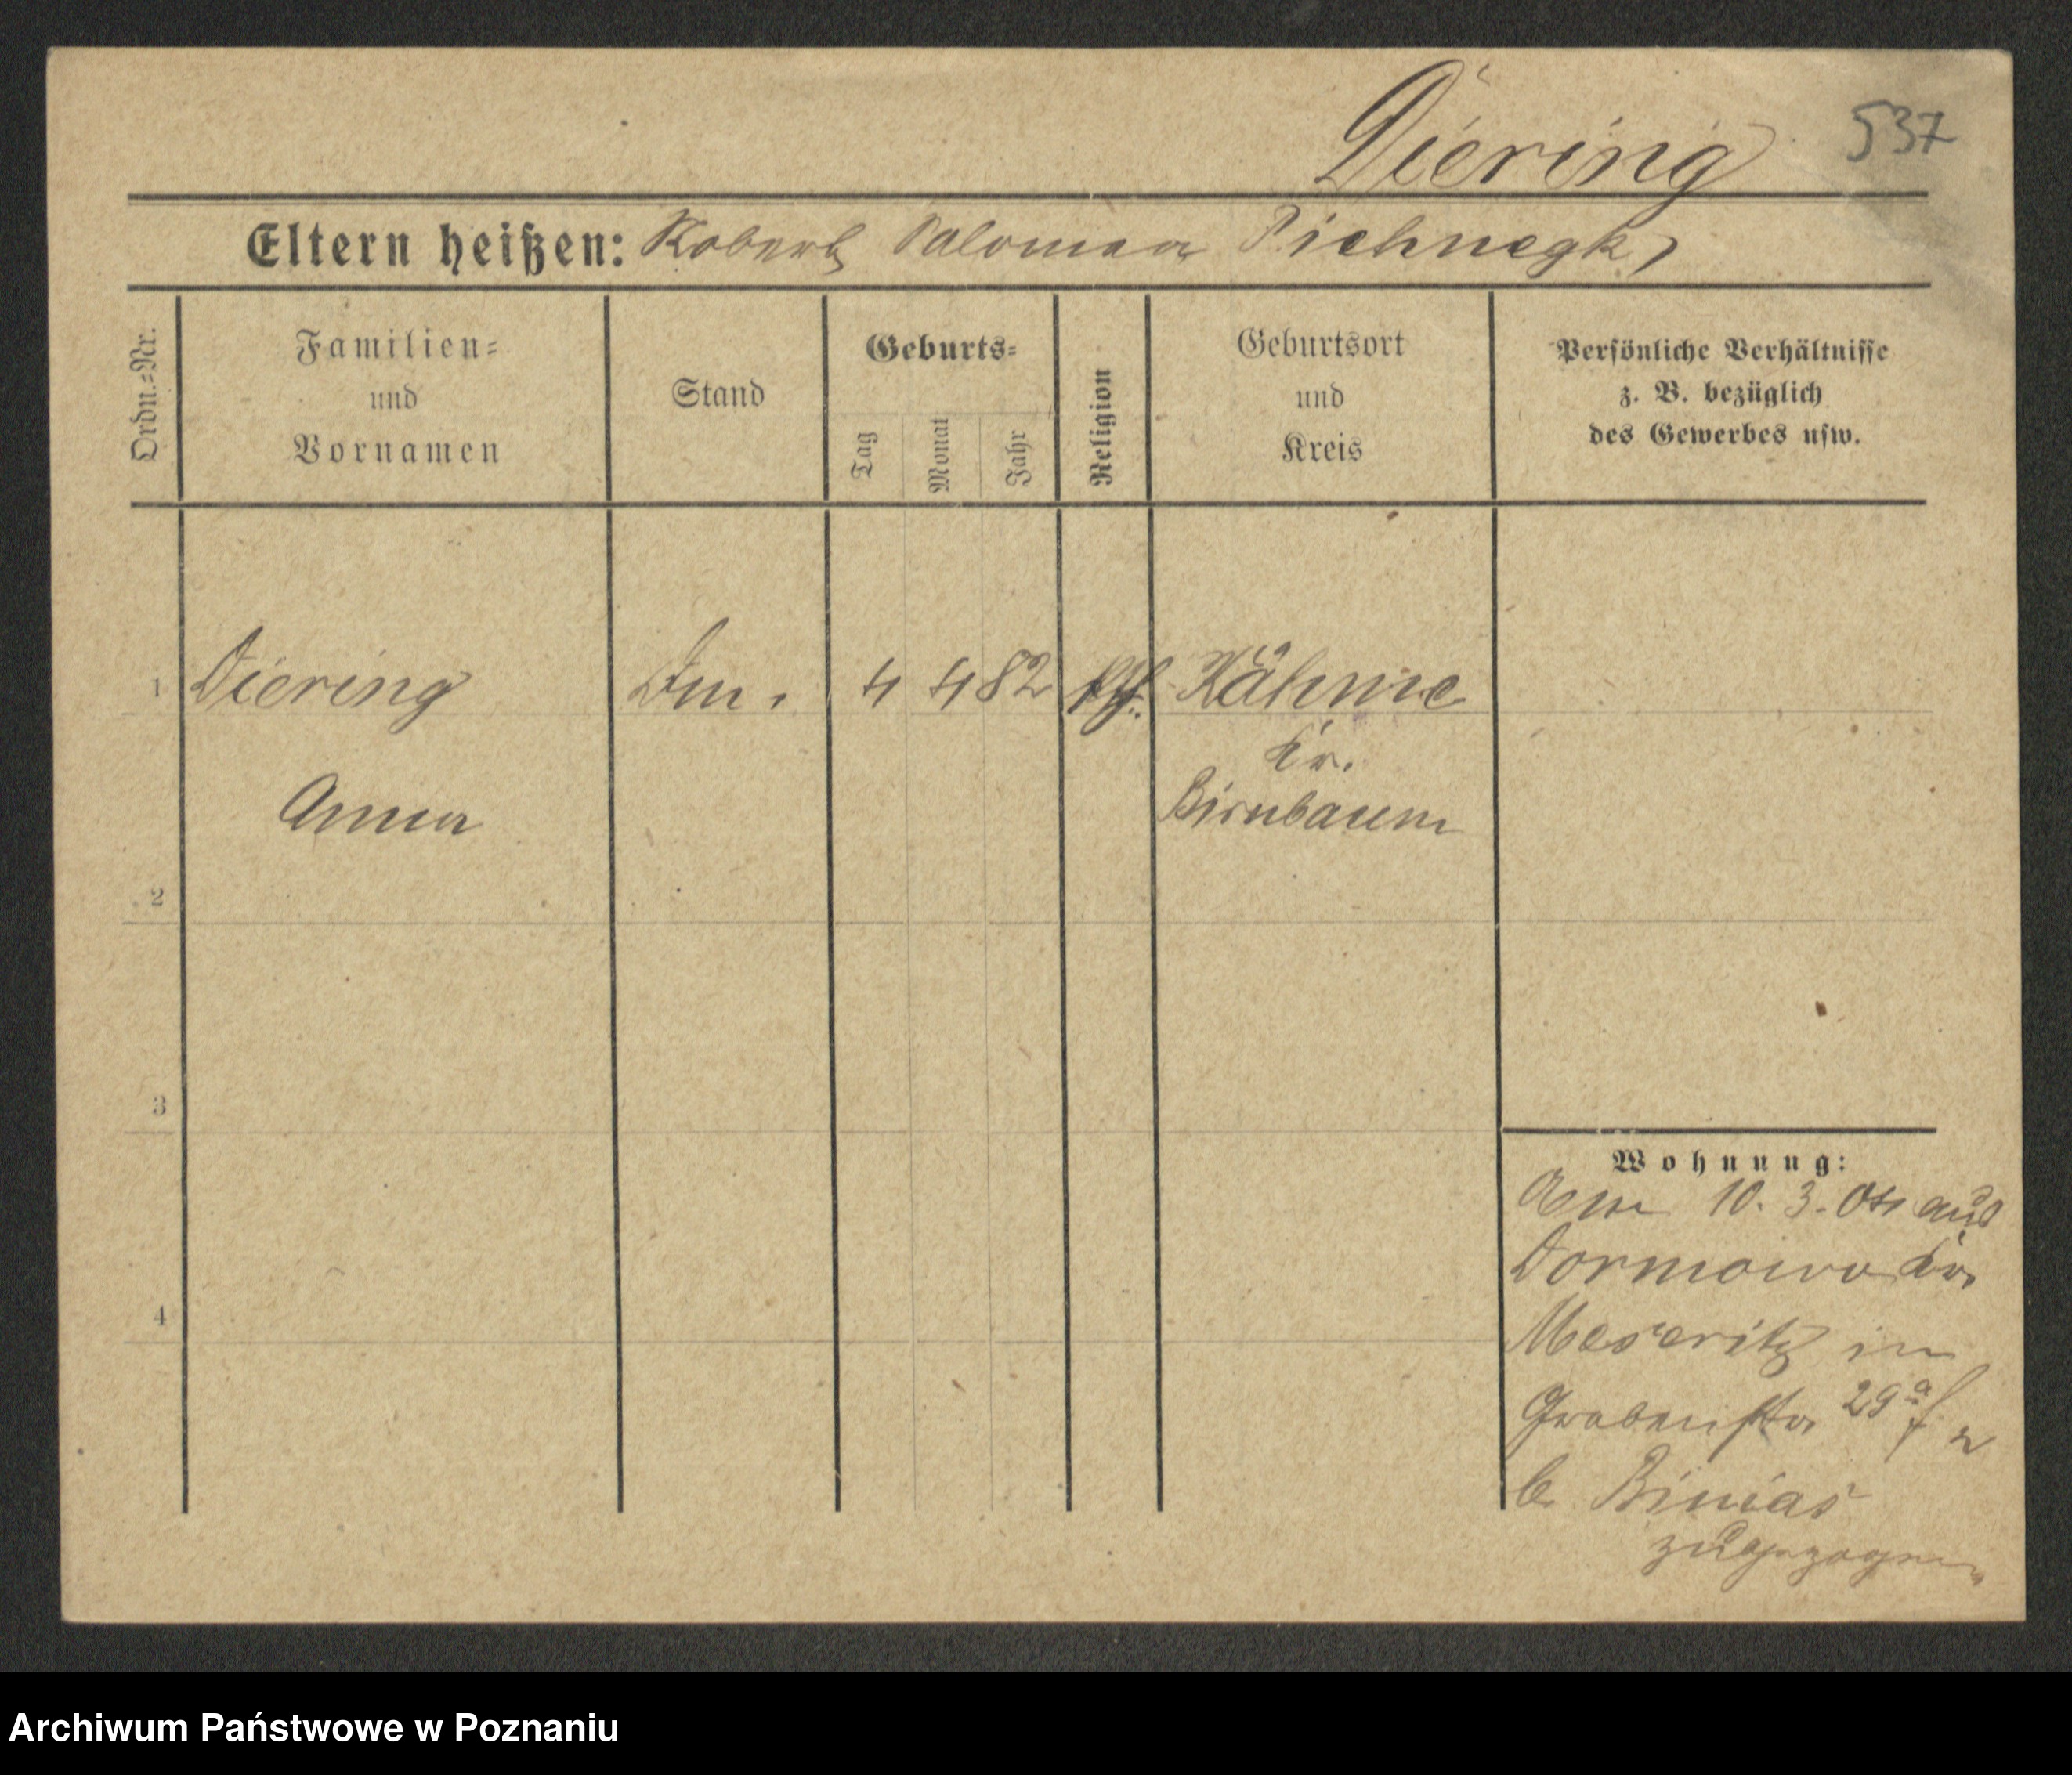 Diering 537
Eltern heißen: Robert Salomea Pichnegk,
Ordn.=Nr.
Familien=
und
Vornamen
Stand
Geburts=
Tag
Monat
Jahr
Religion
Geburtsort
und
Kreis
Persönliche Verhältnisse
z. B. bezüglich
des Gewerbes usw.
1 Diering 4 4 82 Kähme
Kr.
Anna Birnbaum
2
3
4
Wohnung:
Am 10. 3. 04 aus
Dormowo Kr.
Meseritz in
Grabenstr. 29a
b. Binias
zugezogen
Archiwum Państwowe w Poznaniu